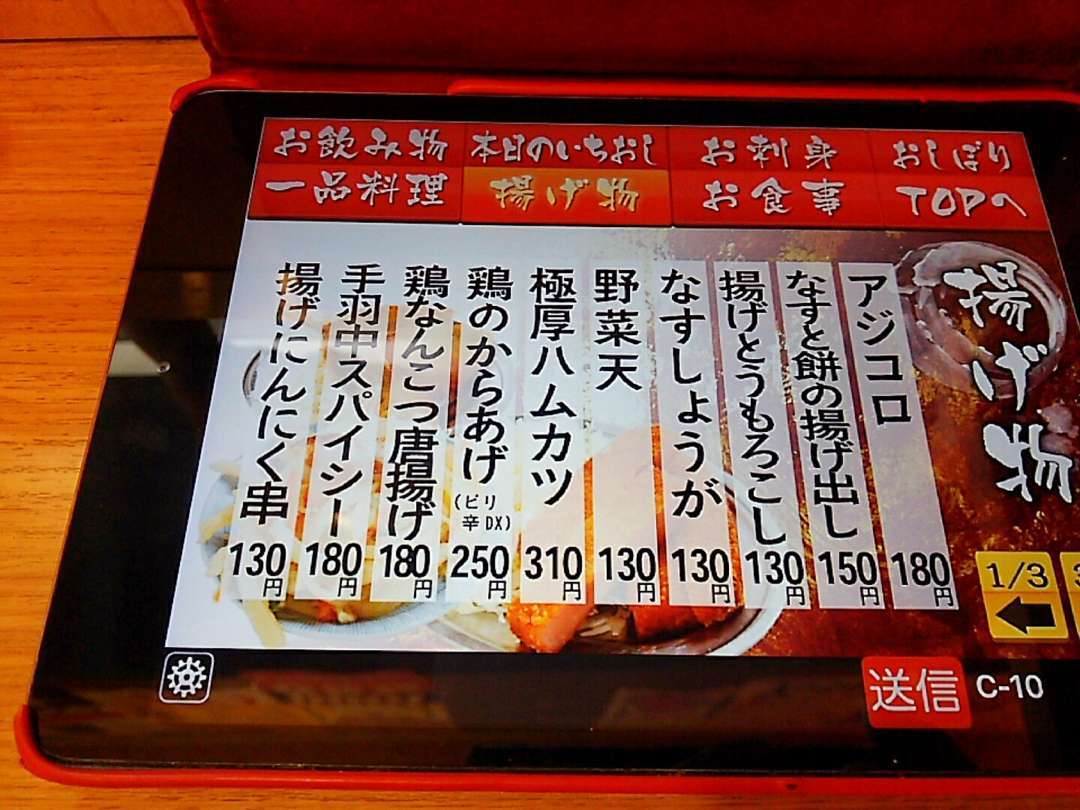 お飲み物
本日のいちおし
お刺身
おしぼり
一品料理
揚げ物
お食事
TOPへ
揚げ物
アジコロ
180円
なすと餅の揚げ出し
150円
揚げとうもろこし
130円
なすしょうが
130円
野菜天
130円
極厚ハムカツ
310円
鶏のからあげ
(ピリ
辛DX)
250円
鶏なんこつ唐揚げ
180円
手羽中スパイシー
180円
揚げにんにく串
130円
1/3
送信
C-10